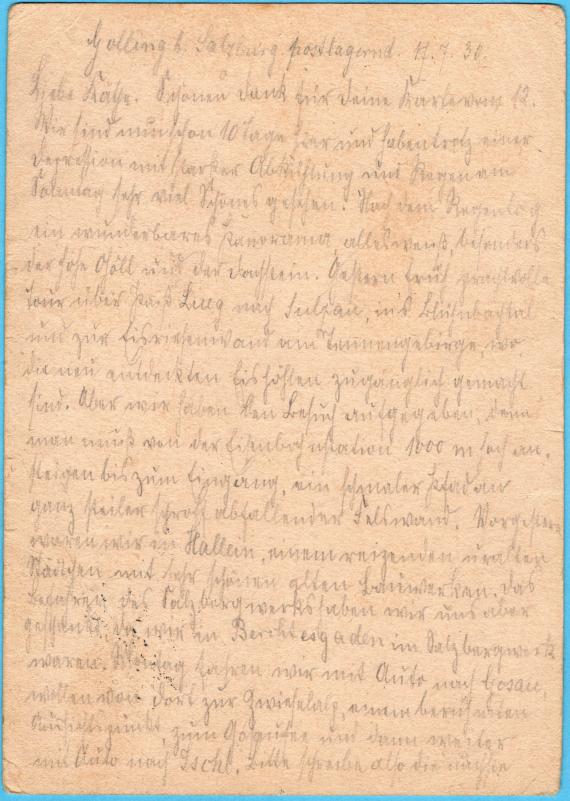 Golling b. Salzburg postlagernd. 17.7.30.
Liebe Käthe. Schönen Dank für Deine Karte vom 12.
Wir sind nun schon 10 Tage hier und haben trotz einer
Depression mit starker Abkühlung und Regen am
Sonntag sehr viel Schönes gesehen. Nach dem Regentag
ein wunderbares Panorama, alles weiß, besonders
der hohe Göll und der Dachstein. Gestern früh prachtvolle
Tour über Paß Lueg nach Sulzau, ins Blühnbachtal
und zur Eisriesenwand am Tennengebirge, wo
die neu entdeckten Eishöhlen zugänglich gemacht
sind. Aber wir haben den Besuch aufgegeben, denn
man muß von der Eisenbahnstation 1000 m hoch an-
steigen bis zum Eingang, ein schmaler Pfad an
ganz steiler schroff abfallender Felswand. Vorgestern
waren wir in Hallein, einem reizenden uralten
Städtchen mit sehr schönen alten Bauwerken. Das
Befahren des Salzbergwerks haben wir uns aber
geschenkt, da wir in Berchtesgaden im Salzbergwerk
waren. Montag fahren wir mit Auto nach Gosau,
wollen von dort zur Zwieselalp, einem berühmten
Aussichtspunkt zum Gosausee und dann weiter
mit Auto nach Ischl. Bitte schreibe also die nächste